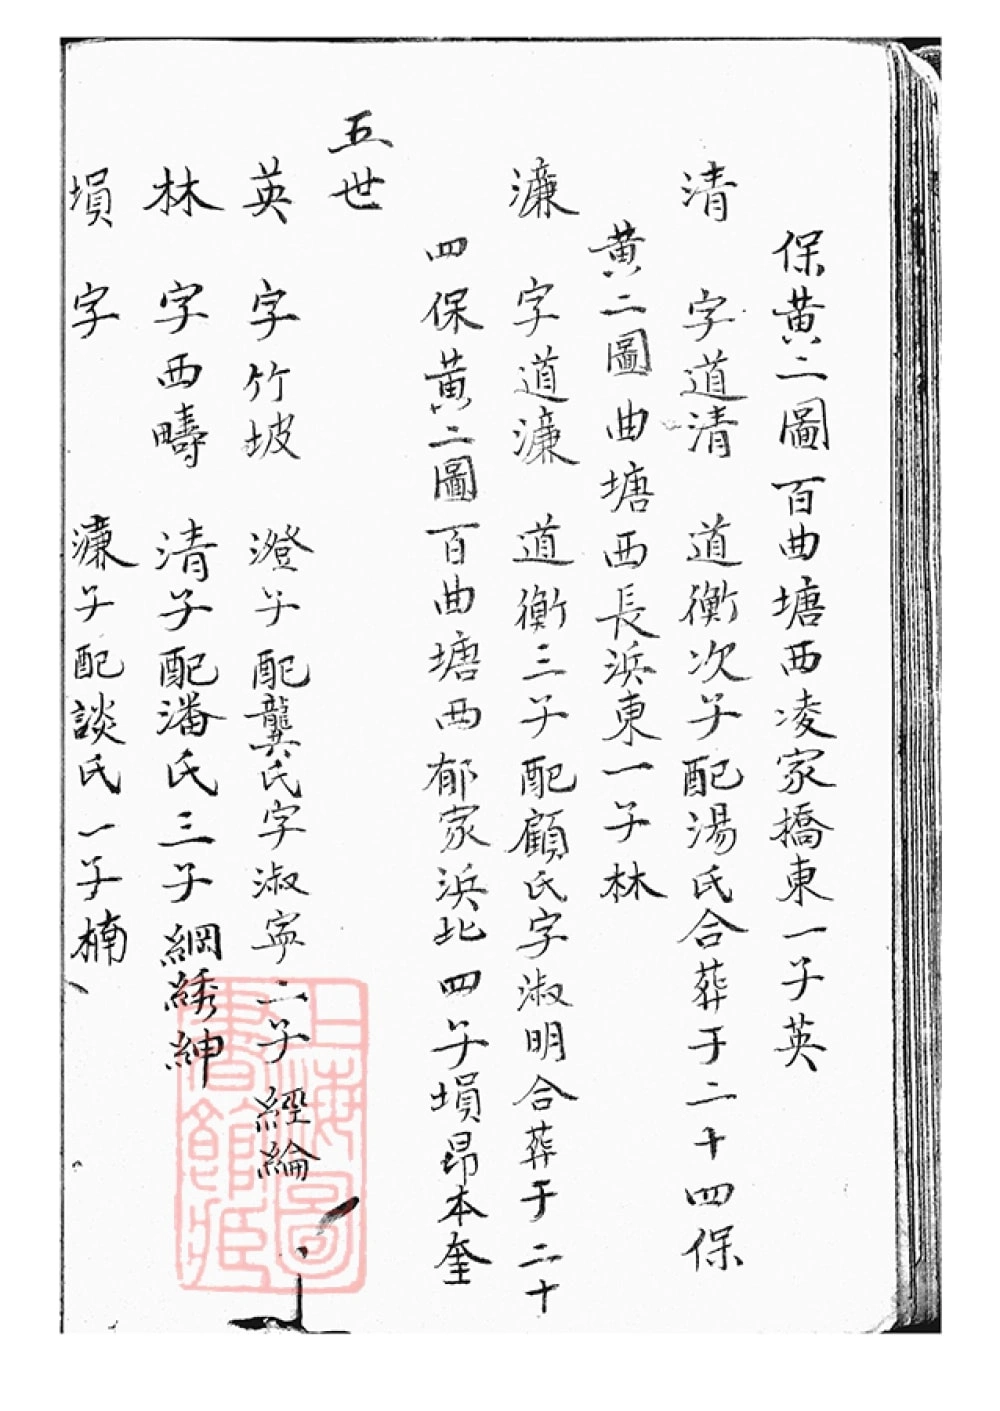 保黄二圖百曲塘西凌家橋東一子英
清　字道清　道衡次子配湯氏合葬于二十四保
黄二圖曲塘西長浜東一子林
濂　字道濂　道衡三子配顧氏字淑明合葬于二十
四保黄二圖百曲塘西郁家浜北四子塤昂本奎
五世
英　字竹坡　澄子配龔氏字淑寧二子經綸
林　字西疇　清子配潘氏三子綱綉紳
塤　字　濂子配談氏一子楠
上海圖書館藏